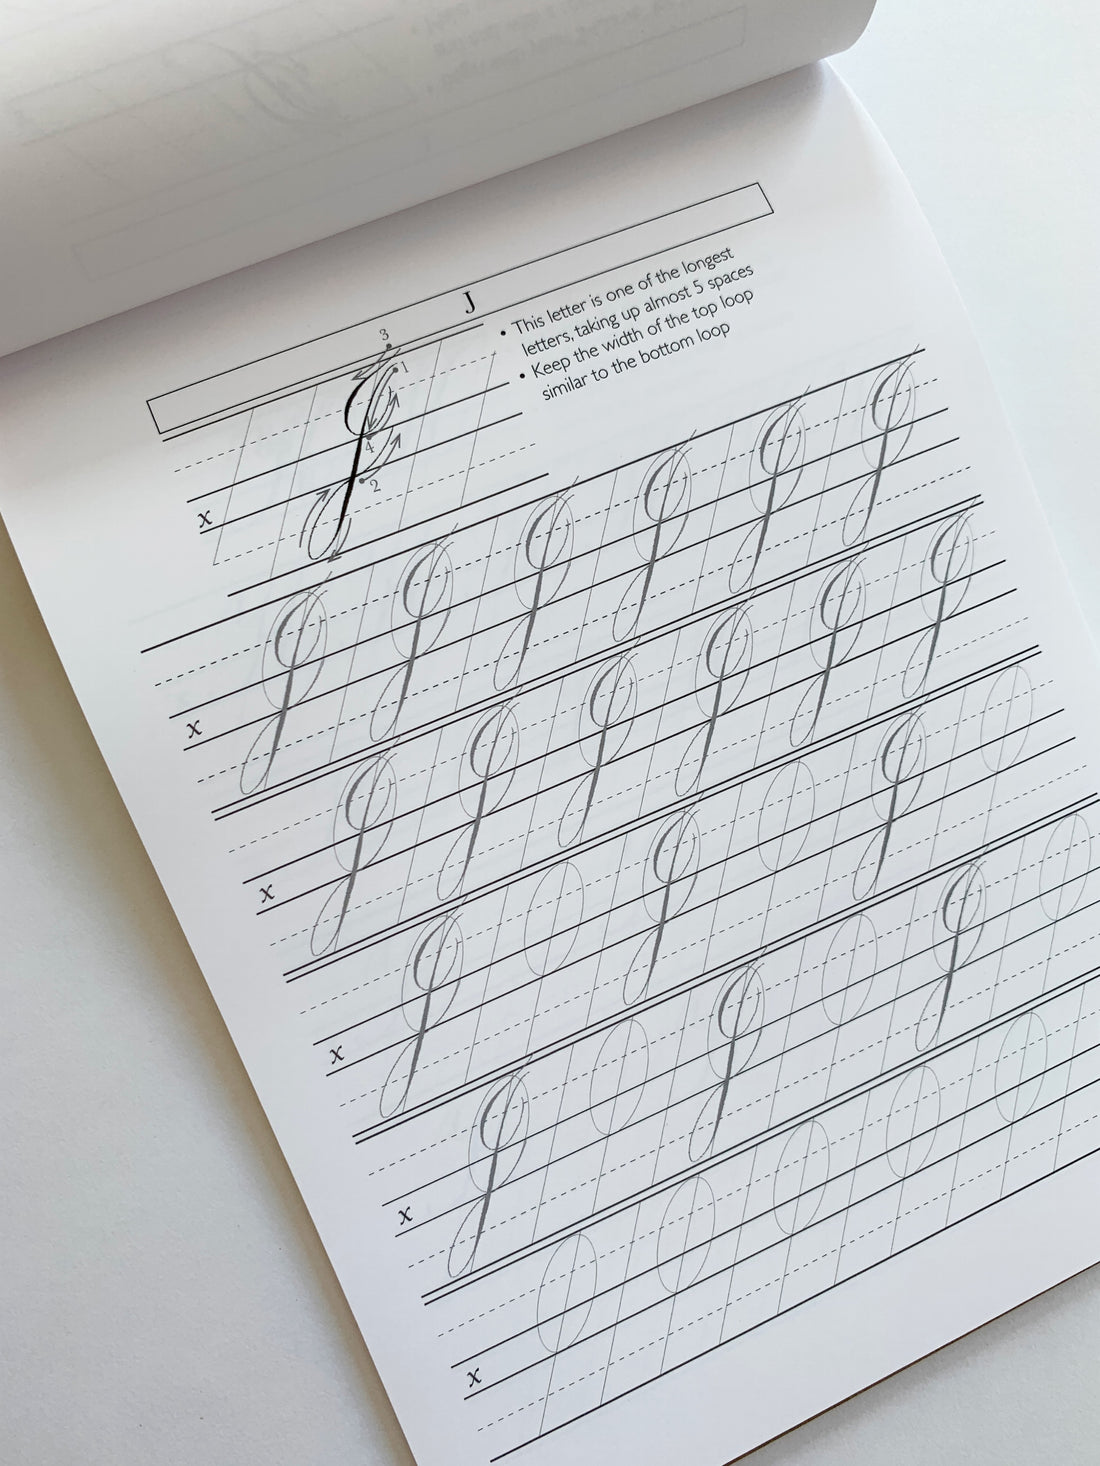 J
• This letter is one of the longest
letters, taking up almost 5 spaces
• Keep the width of the top loop
similar to the bottom loop
3
1
4
2
x
x
x
x
x
x